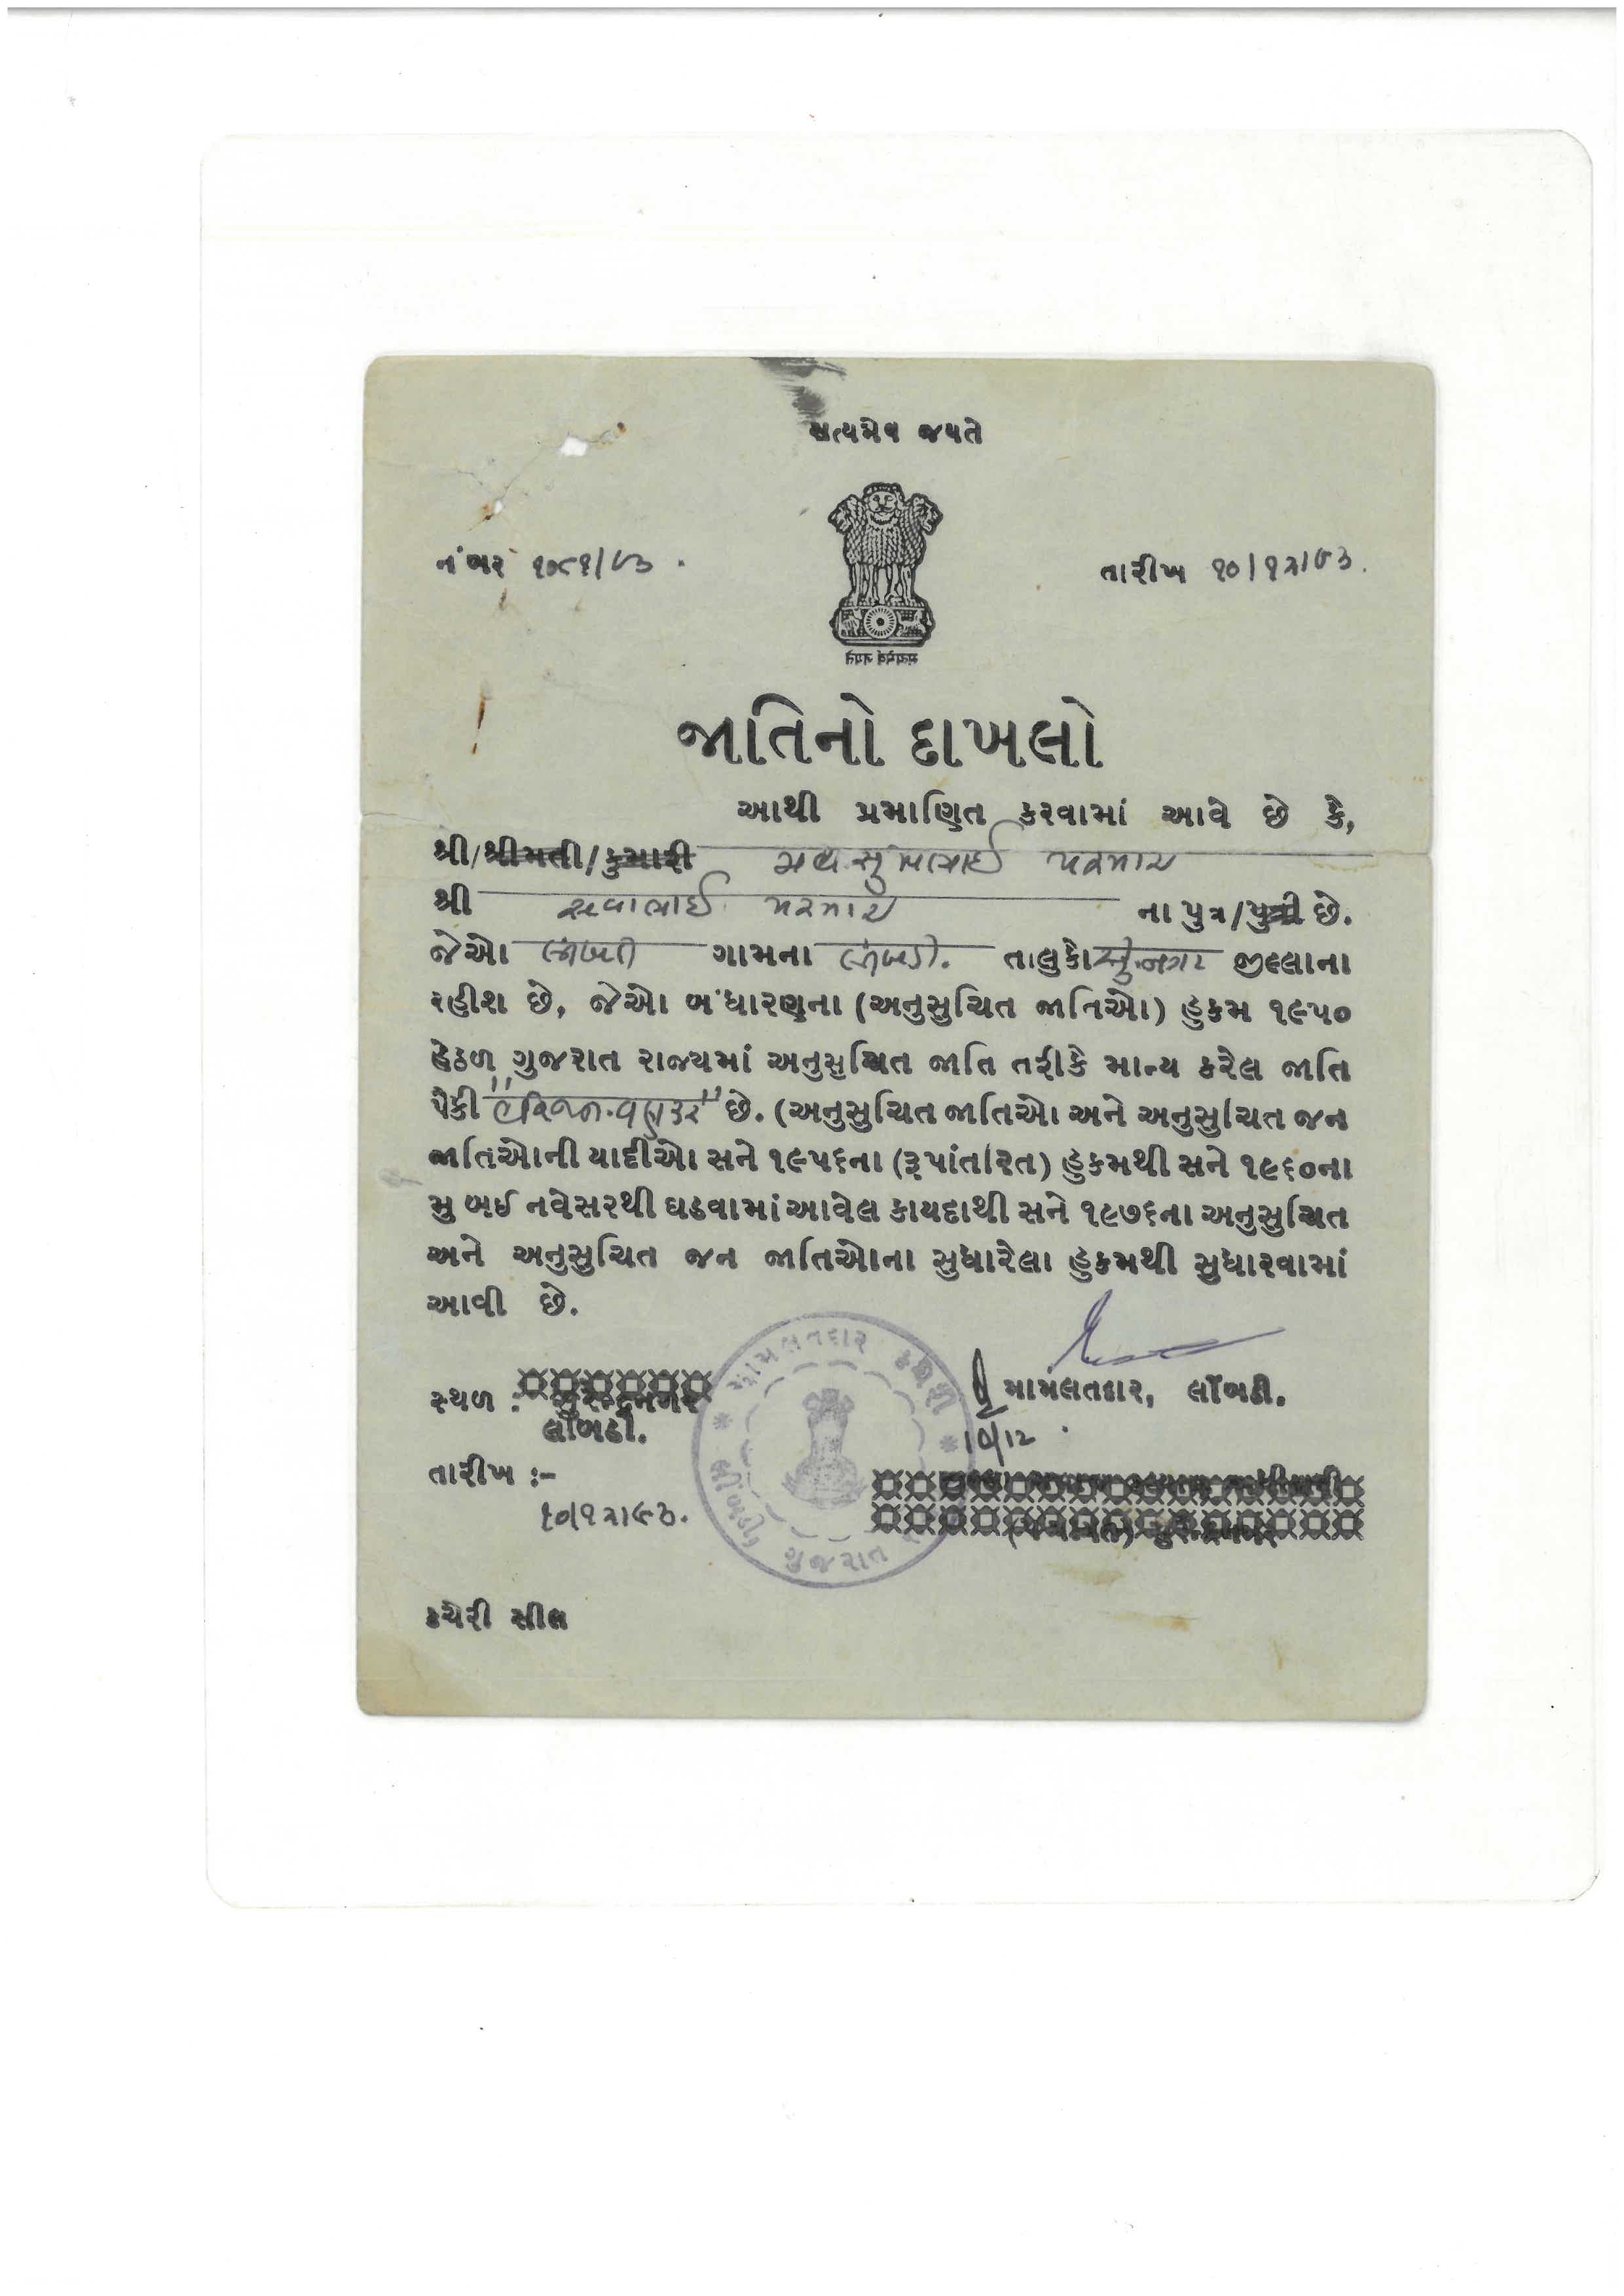 સત્યમેવ જયતે
નંબર
તારીખ ૧૦/૧૨/૯૩.
सत्यमेव जयते
જાતિનો દાખલો
આથી પ્રમાણિત કરવામાં આવે છે કે,
શ્રી/શ્રીમતી/કુમારી પરમાર
શ્રી સવાભાઈ પરમાર ના પુત્ર/પુત્રી છે.
જેઓ લીંબડી ગામના લીંબડી. તાલુકો સુ.નગર જીલ્લાના
રહીશ છે, જેઓ બંધારણના (અનુસુચિત જાતિઓ) હુકમ ૧૯૫૦
હેઠળ ગુજરાત રાજ્યમાં અનુસુચિત જાતિ તરીકે માન્ય કરેલ જાતિ
પૈકી "હરિજન-વણકર" છે. (અનુસુચિત જાતિઓ અને અનુસુચિત જન
જાતિઓની યાદીઓ સને ૧૯૫૬ના (રૂપાંતરિત) હુકમથી સને ૧૯૬૦ના
મુંબઈ નવેસરથી ઘડવામાં આવેલ કાયદાથી સને ૧૯૭૬ના અનુસુચિત
અને અનુસુચિત જન જાતિઓના સુધારેલા હુકમથી સુધારવામાં
આવી છે.
સ્થળ : સુરેન્દ્રનગર
લીંબડી.
મામલતદાર, લીંબડી.
10/12
તારીખ :-
૧૦/૧૨/૯૩.
મામલતદાર કચેરી
લીંબડી
ગુજરાત
કચેરી સીલ